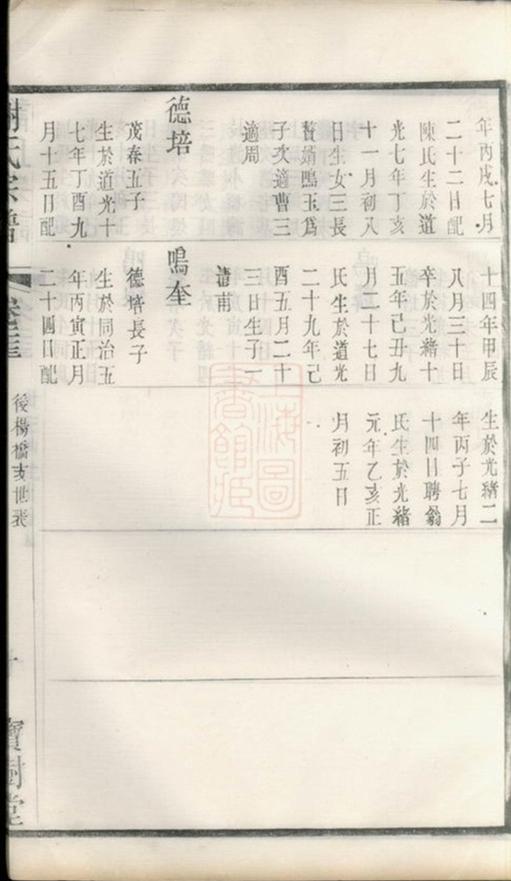 年丙戌七月
二十二日配
陳氏生於道
光七年丁亥
十一月初八
日生女三長
贅婿鳴玉爲
子次適曹三
適周
德培
茂春五子
生於道光十
七年丁酉九
月十五日配
十四年甲辰
八月三十日
卒於光緒十
五年己丑九
月二十七日
氏生於道光
二十九年己
酉五月二十
三日生子一
清甫
鳴奎
德培長子
生於同治五
年丙寅正月
二十四日配
生於光緒二
年丙子七月
十四日聘翁
氏生於光緒
元年乙亥正
月初五日
上海圖書館藏
氏宗譜
後楊橋支世表
十
寶樹堂